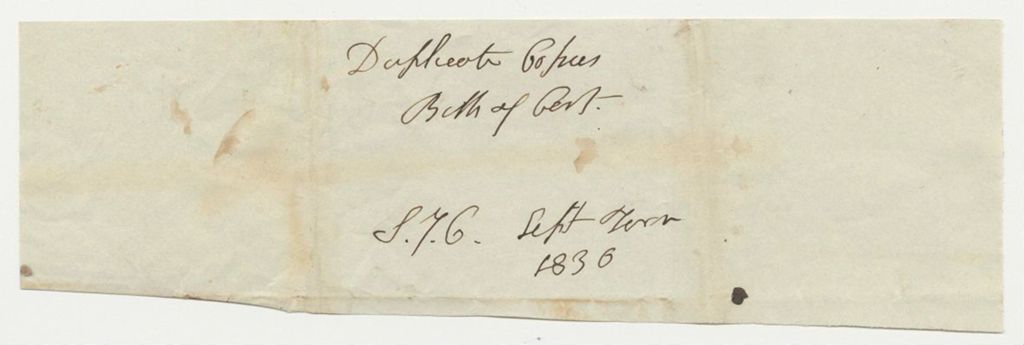 Duplicate Copies
Bills of Cost.
S.J.C. Sept Term
1836